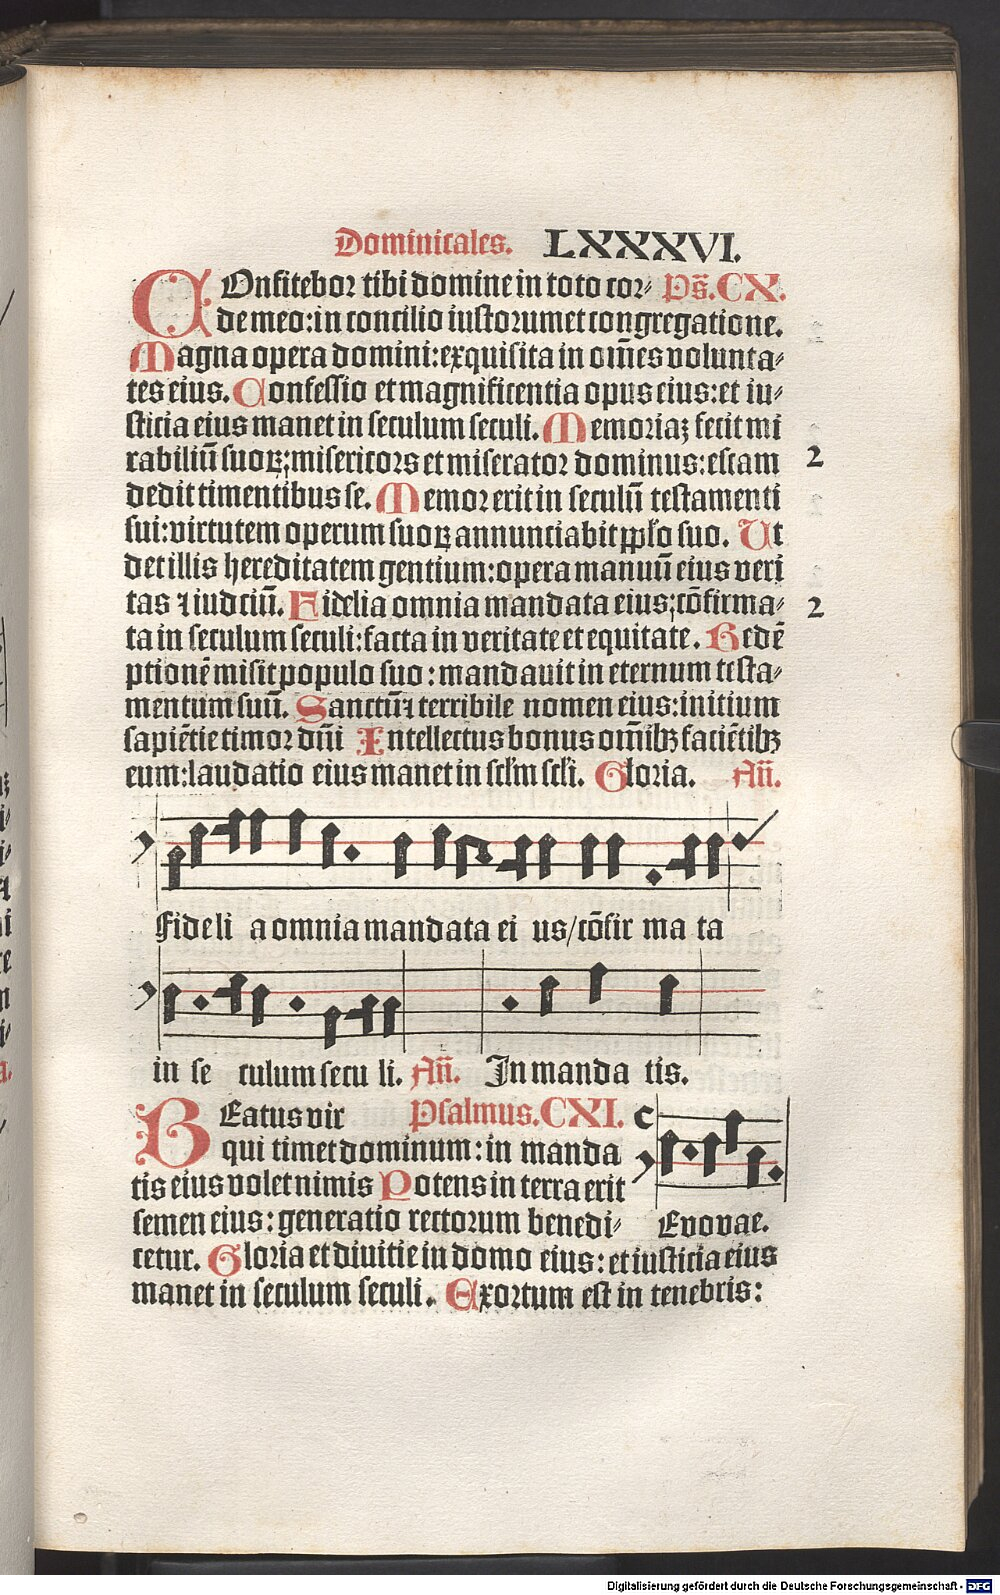 Dominicales. LXXXVI.
COnfitebor tibi domine in toto cor- Ps̄.CX.
de meo: in concilio iustorum et congregatione.
Magna opera domini: exquisita in om̄es volunta-
tes eius. Confessio et magnificentia opus eius: et iu-
sticia eius manet in seculum seculi. Memoriaꝫ fecit mi
rabiliū suoꝝ: misericors et miserator dominus: escam 2
dedit timentibus se. Memor erit in seculū testamenti
sui: virtutem operum suoꝝ annunciabit pplo suo. Ut
det illis hereditatem gentium: opera manuū eius veri
tas ⁊ iudciū. Fidelia omnia mandata eius; cōfirma- 2
ta in seculum seculi: facta in veritate et equitate. Redē
ptionē misit populo suo: mandauit in eternum testa-
mentum suū. Sanctū ⁊ terribile nomen eius: initium
sapiētie timor dn̄i Intellectus bonus om̄ibꝫ faciētibꝫ
eum: laudatio eius manet in scl̄m scl̄i. Gloria. An̄.
Fideli a omnia mandata ei us/cōfir ma ta
in se culum secu li. An̄. In manda tis.
BEatus vir Psalmus.CXI. C
qui timet dominum: in manda
tis eius volet nimis Potens in terra erit
semen eius: generatio rectorum benedi- Evovae.
cetur. Gloria et diuitie in domo eius: et iusticia eius
manet in seculum seculi. Exortum est in tenebris:
Digitalisierung gefördert durch die Deutsche Forschungsgemeinschaft - DFG